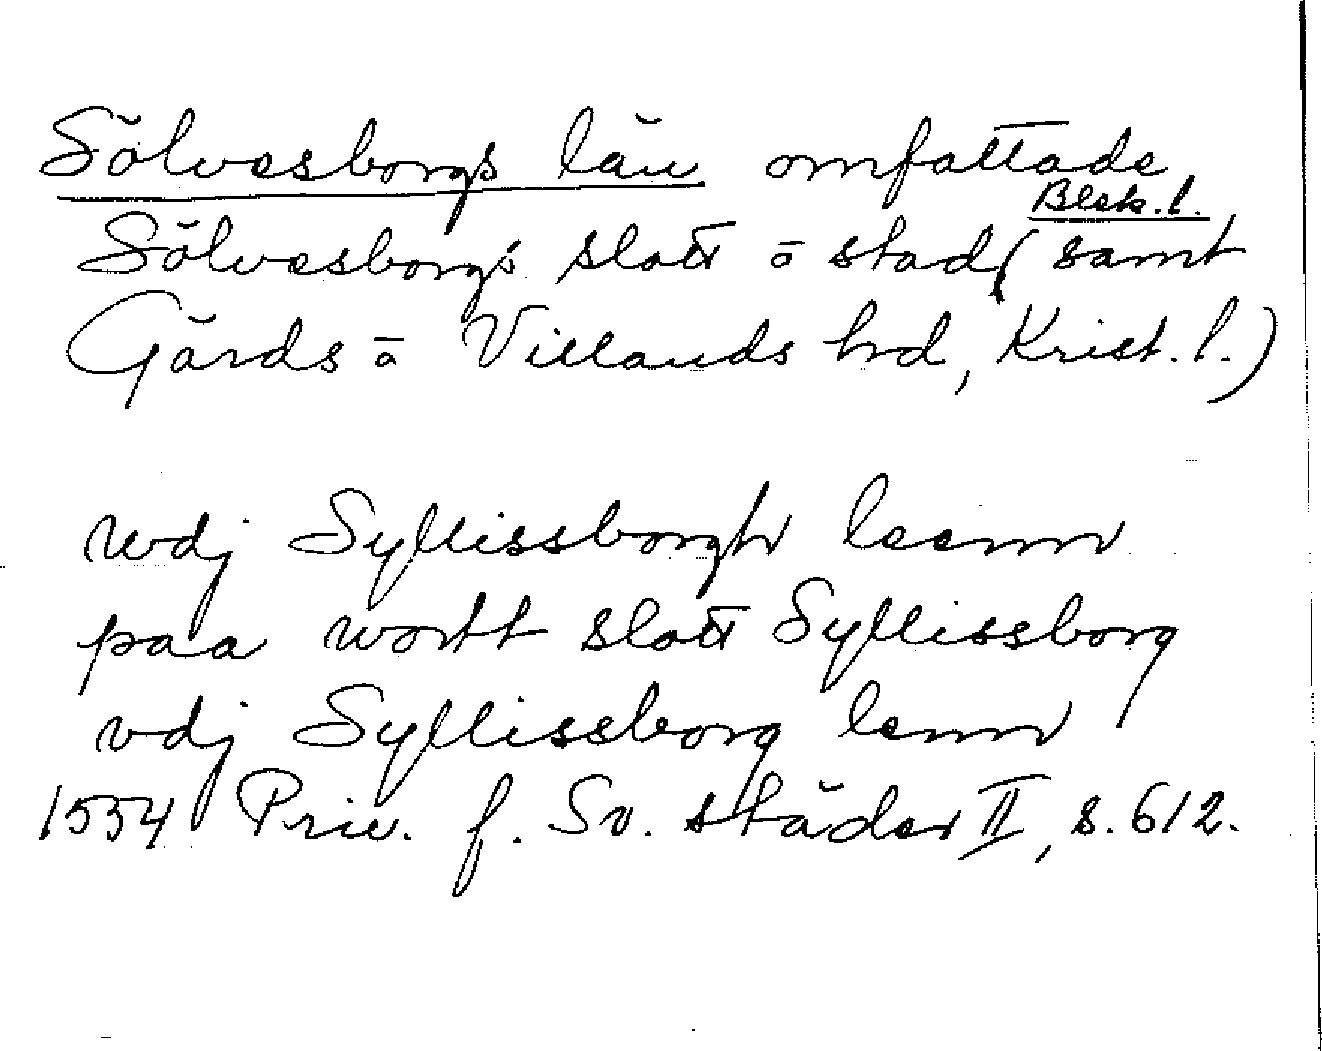 Sölvesborgs län omfattade
Blek. l.
Sölvesborgs slott o stad ( samt
Gärds o Villands hd, Krist. l.)
wdj Syllissborgh leenn
paa wortt slott Syllissborg
vdj Syllissborg lenn
1554 Priv. f. Sv. städer II, s. 612.